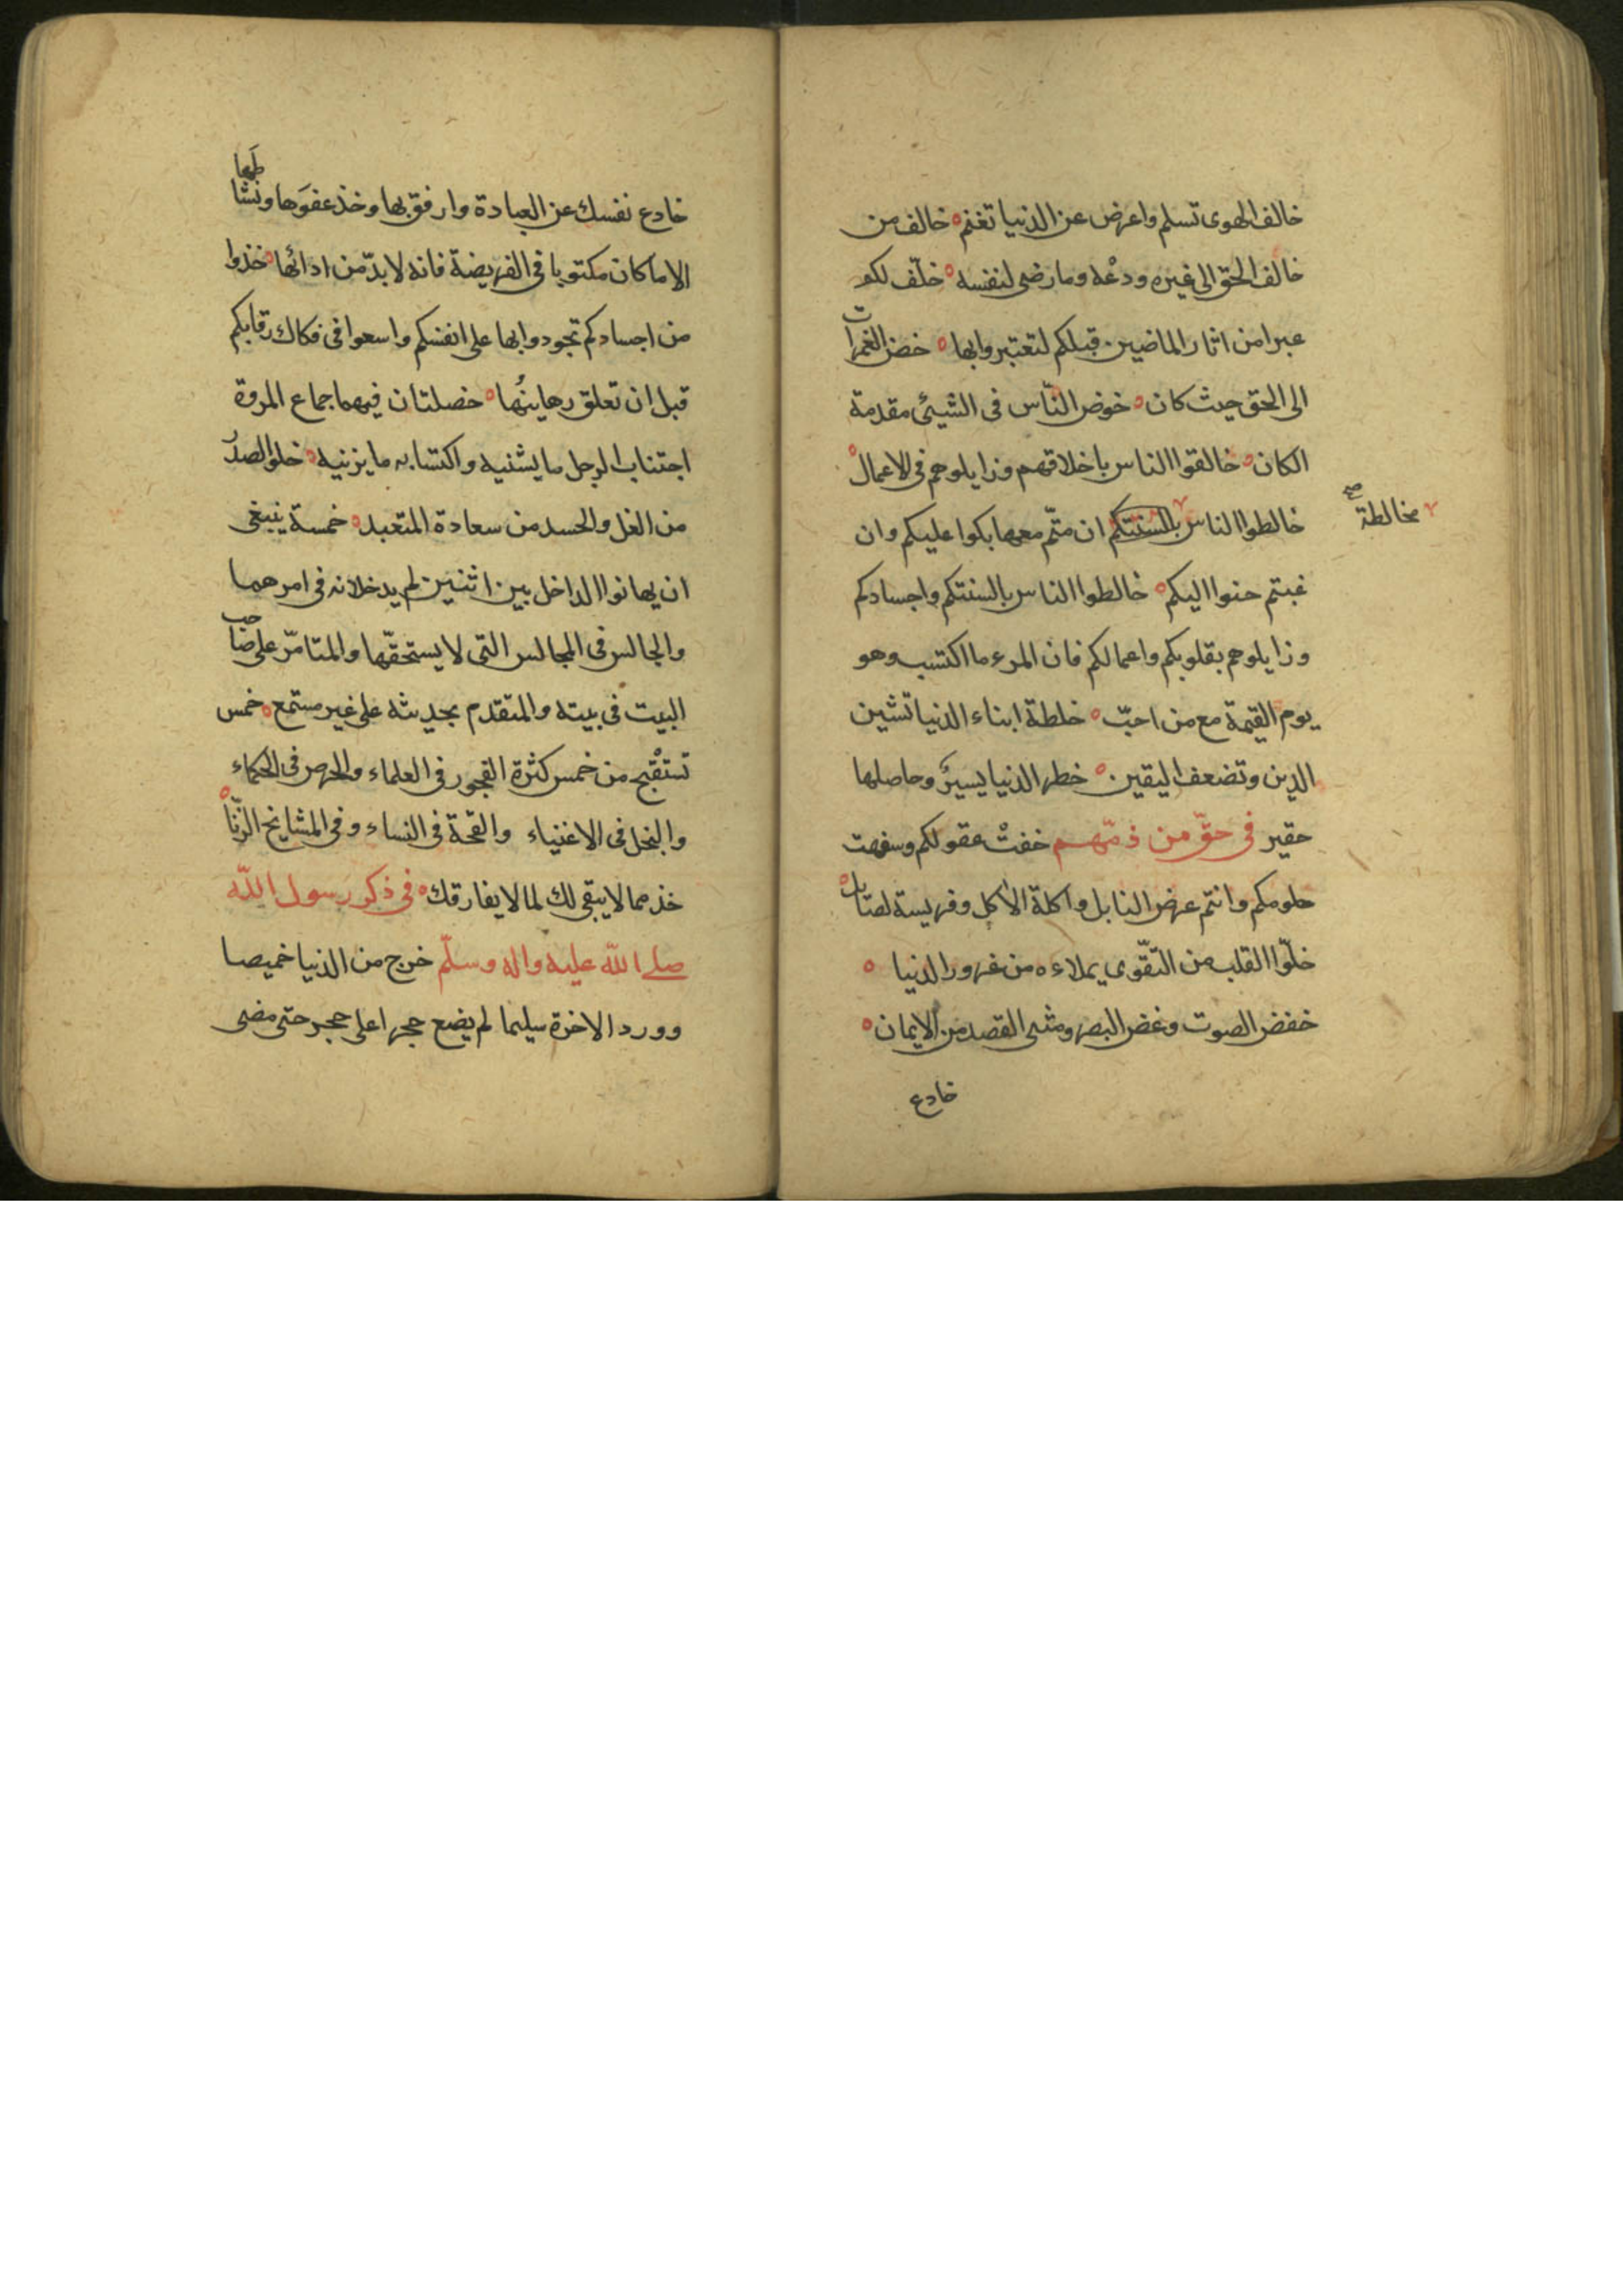 خالف الهوى تسلم واعرض عن الدنيا تغنم ه خالف من
خالف الحق الى غيره ودعْه وما رضى لنفسه ه خلّف لكم
عبرا من اثار الماضين قبلكم لتعتبروا بها ه خض الغمرات
الى الحق حيث كان ه خوض النّاس فى الشيئ مقدمة
الكان ه خالقوا الناس باخلاقهم وزايلوهم فى الاعمال ه
خالطوا الناس بالسنتكم ان متّم معها بكوا عليكم وان
مخالطة صح
غبتم حنوا اليكم ه خالطوا الناس بالسنتكم واجسادكم
وزايلوهم بقلوبكم واعمالكم فان المرء ما اكتسب وهو
يوم القيمة مع من احبّ ه خلطة ابناء الدنيا تشين
الدين وتضعف اليقين ه خطر الدنيا يسير وحاصلها
حقير فى حقّ من ذمّهم خفتْ عقولكم وسفهت
حلومكم وانتم عرض النابل واكلة الاكل وفريسة لصايل ه
خلّوا القلب من التقّوى يملاءه من غرور الدنيا ه
خفض الصوت وغض البصر ومشى القصد من الايمان ه
خادع
خادع نفسك عن العبادة وارفق بها وخذ عفوَها ونشاطَها
الا ما كان مكتوبا فى الفريضة فانه لا بدّ من ادائها ه خذوا
من اجسادكم تجودوا بها على انفسكم واسعوا فى فكاك رقابكم
قبل ان تعلق رهاينُها ه خصلتان فيهما جماع المروة
اجتناب الرجل ما يشنيه واكتسابه ما يزنيه ه خلو الصدر
من الغل والحسد من سعادة المتعبد ه خمسة ينبغى
ان يهانوا الداخل بين اثنين لم يدخلانه فى امرهما
والجالس فى المجالس التى لا يستحقّها والمتامّر على صاحب
البيت فى بيته والمتقدم بحديثه على غير مستمع ه خمس
تستقْبح من خمس كثرة الفجور فى العلماء والحرص فى الحكماء
والبخل فى الاغنياء والقحة فى النساء وفى المشايخ الزنّا ه
خذ مما لا يبقى لك لما لا يفارقك ه فى ذكر رسول اللّه
صلى اللّه عليه واله وسلّم خرج من الدنيا خميصا
وورد الاخرة سليما لم يضع حجرا على حجر حتى مضى